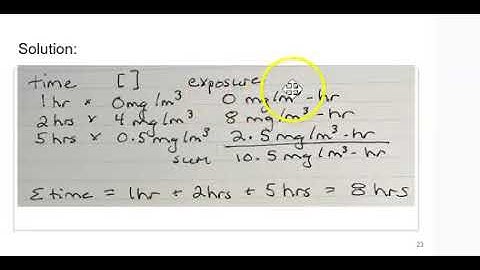 Solution:
time [ ] exposure
1 hr × 0 mg/m³ 0 mg/m³-hr
2 hrs × 4 mg/m³ 8 mg/m³-hr
5 hrs × 0.5 mg/m³ 2.5 mg/m³-hr
sum 10.5 mg/m³-hr
Σ time = 1hr + 2hrs + 5 hrs = 8 hrs
23